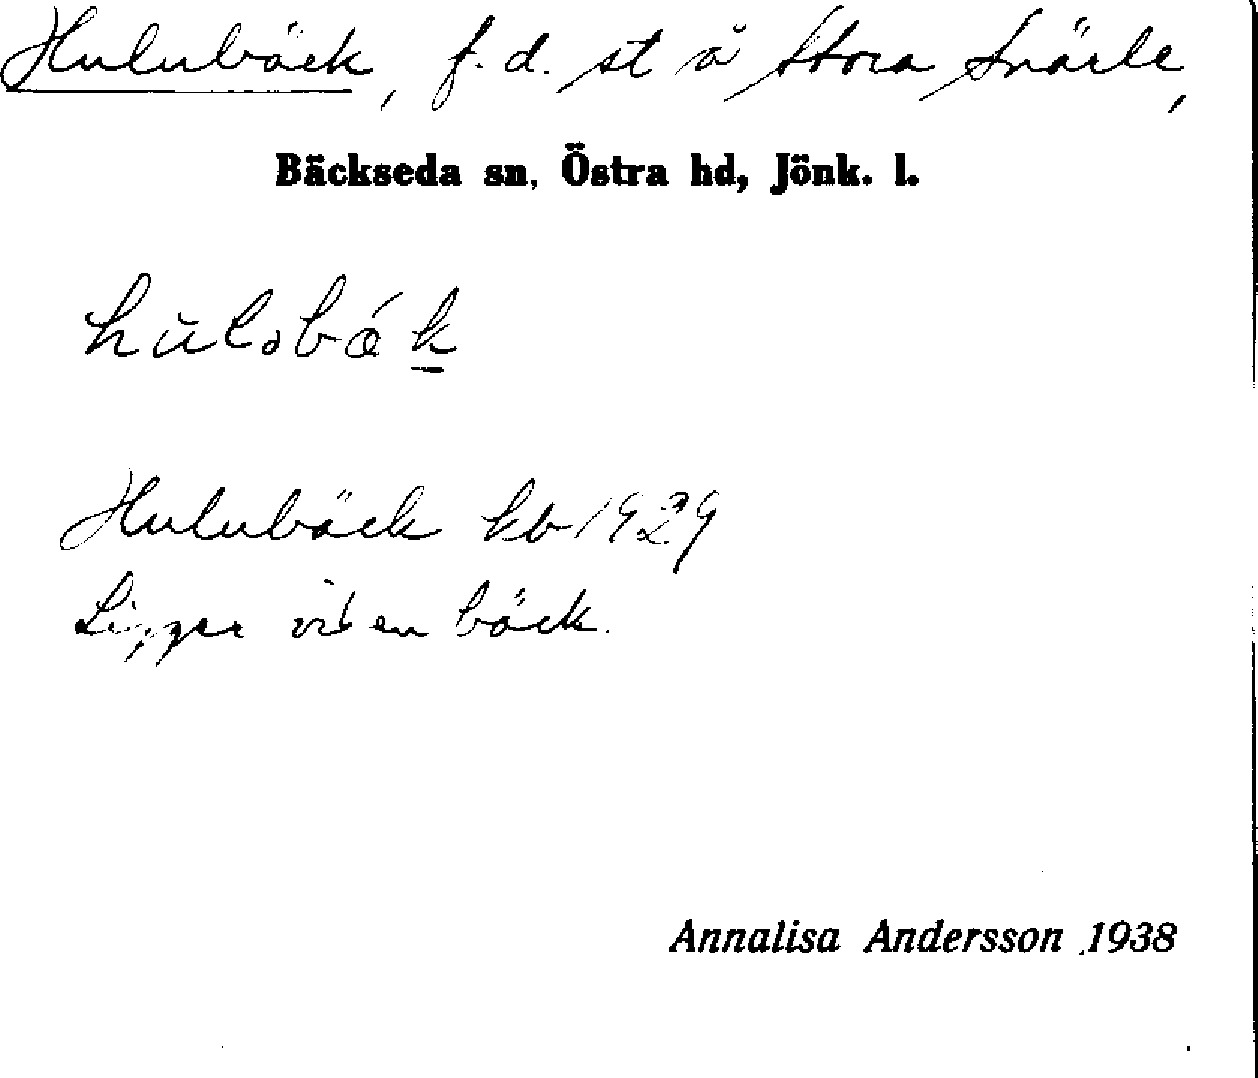 Hulubäck, f. d. st å Stora Snärle,
Bäckseda sn, Östra hd, Jönk. l.
Hulubäck kb 1929
Ligger vid en bäck.
Annalisa Andersson 1938